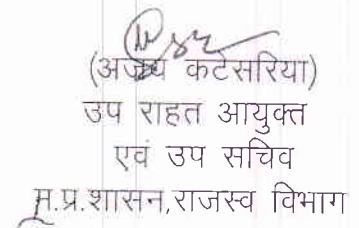 (अजय कटेसरिया)
उप राहत आयुक्त
एवं उप सचिव
म.प्र.शासन,राजस्व विभाग